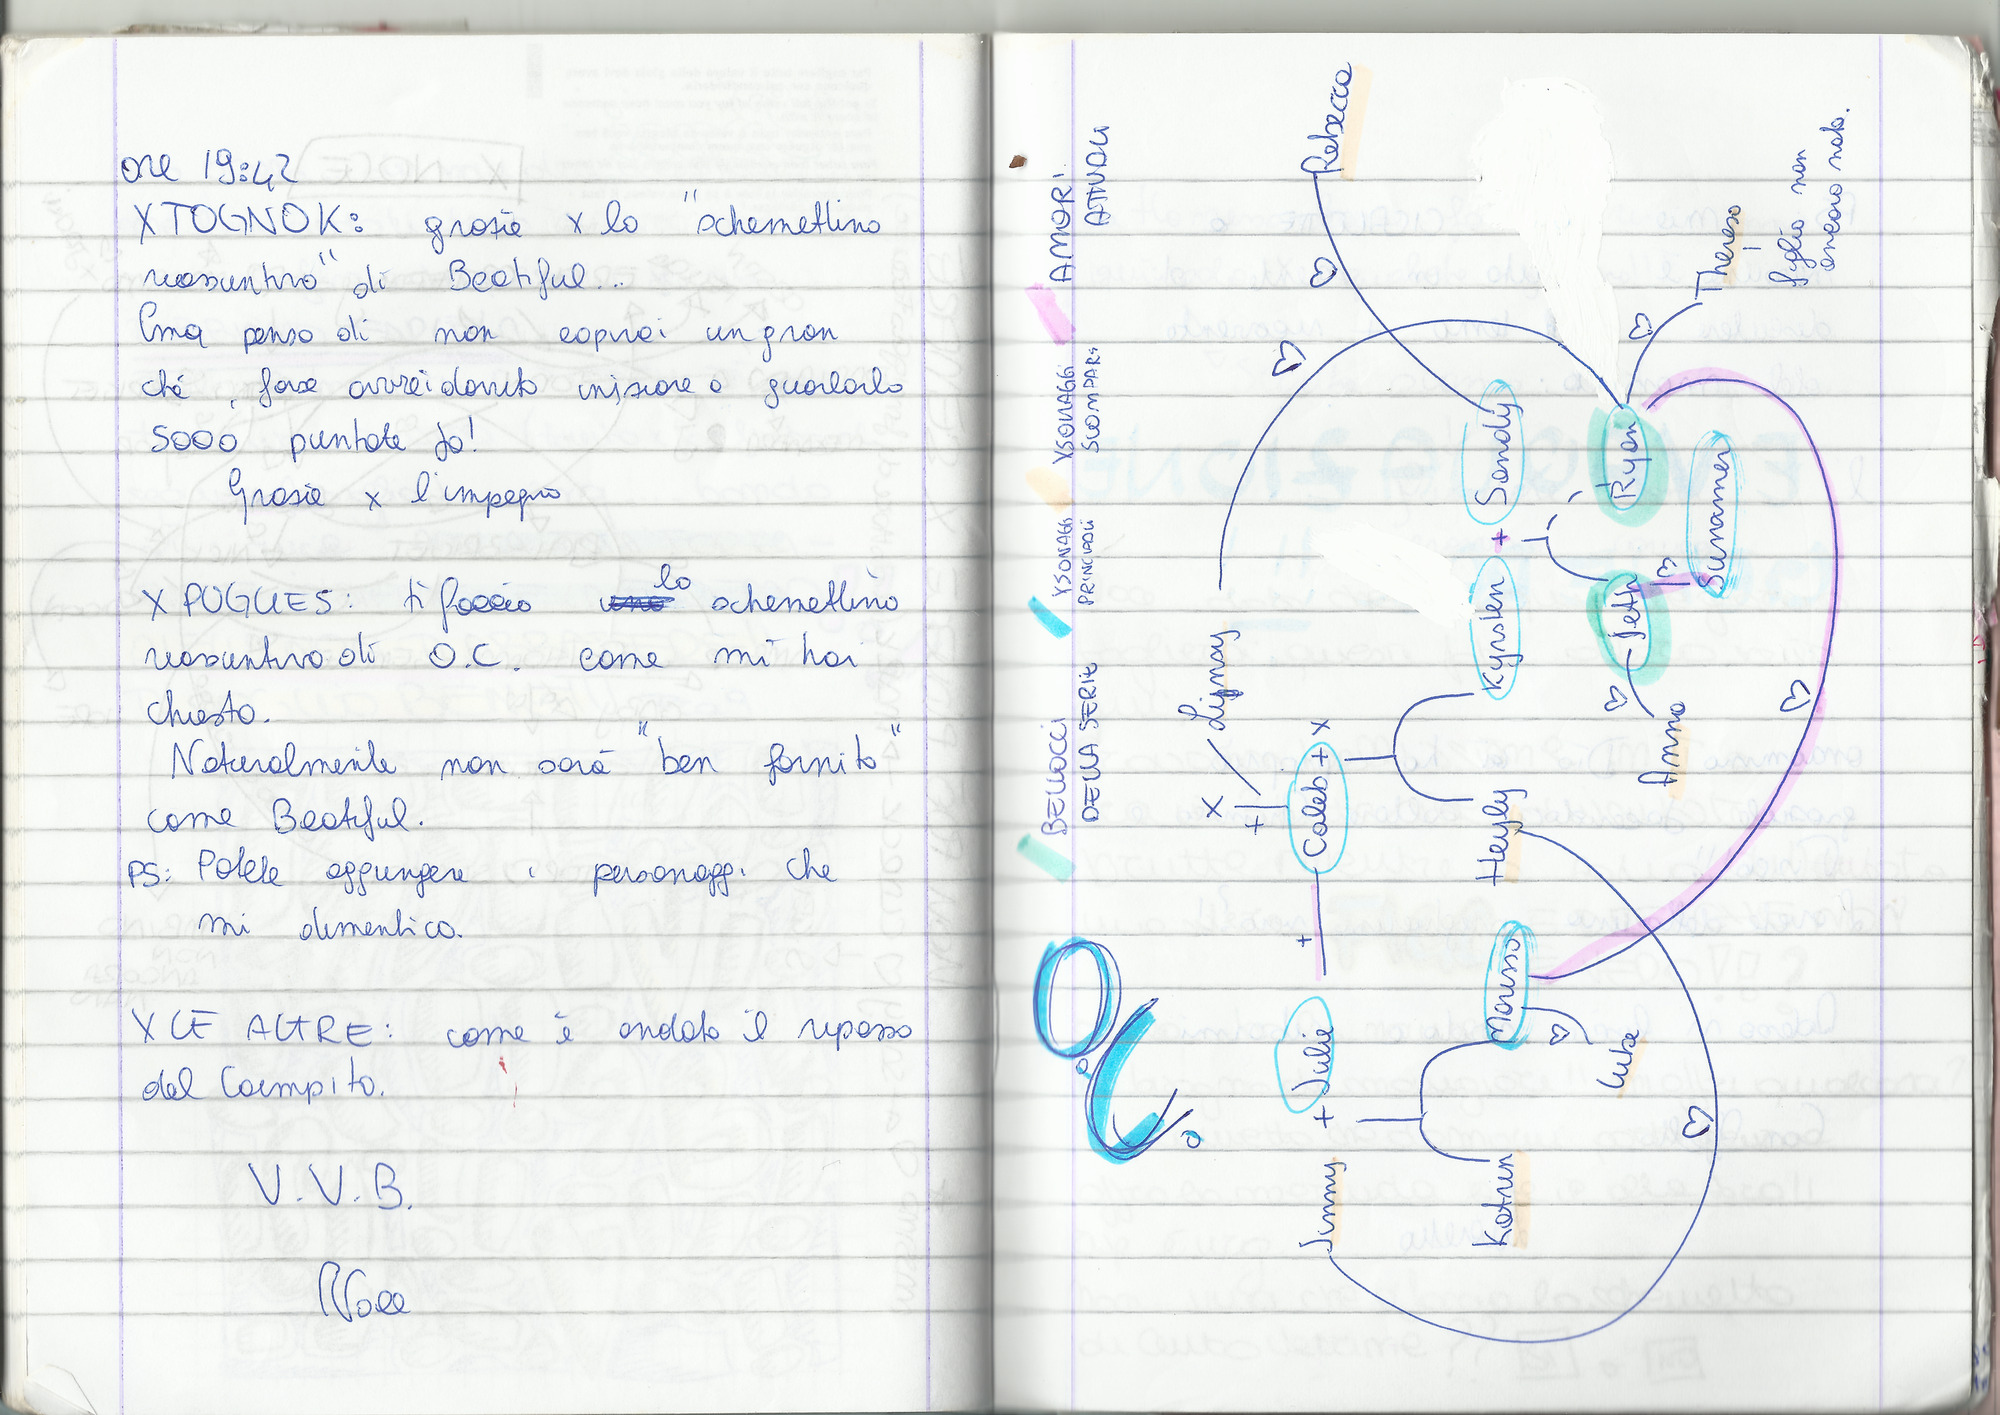 ore 19:42
X TOGNOK: grazie x lo "schemettino
riassuntivo" di Beatiful...
Ema penso di non capirci un gran
ché, forse avrei dovuto iniziare a guardarlo
5000 puntate fa!
Grazie x l'impegno
X POGUES: ti faccio lo schemettino
riassuntivo di O.C. come mi hai
chiesto.
Naturalmente non sarà "ben fornito"
come Beatiful.
PS: Potete aggiungere i personaggi che
mi dimentico.
X LE ALTRE: come è andato il ripasso
del Compito.
V.V.B.
Noee
O.C.
BELLOCCI
DELLA SERIE
XSONAGGI
PRINCIPALI
XSONAGGI
SCOMPARSI
AMORI
ATTUALI
X + Lijnsay
Jimmy + Julie + Caleb + X
Katrin Marissa Heyly Kyrsten + Sandy Rebecca
Luke Anna Jeth Ryan Theresa
Summer
figlio non
ancora nato.